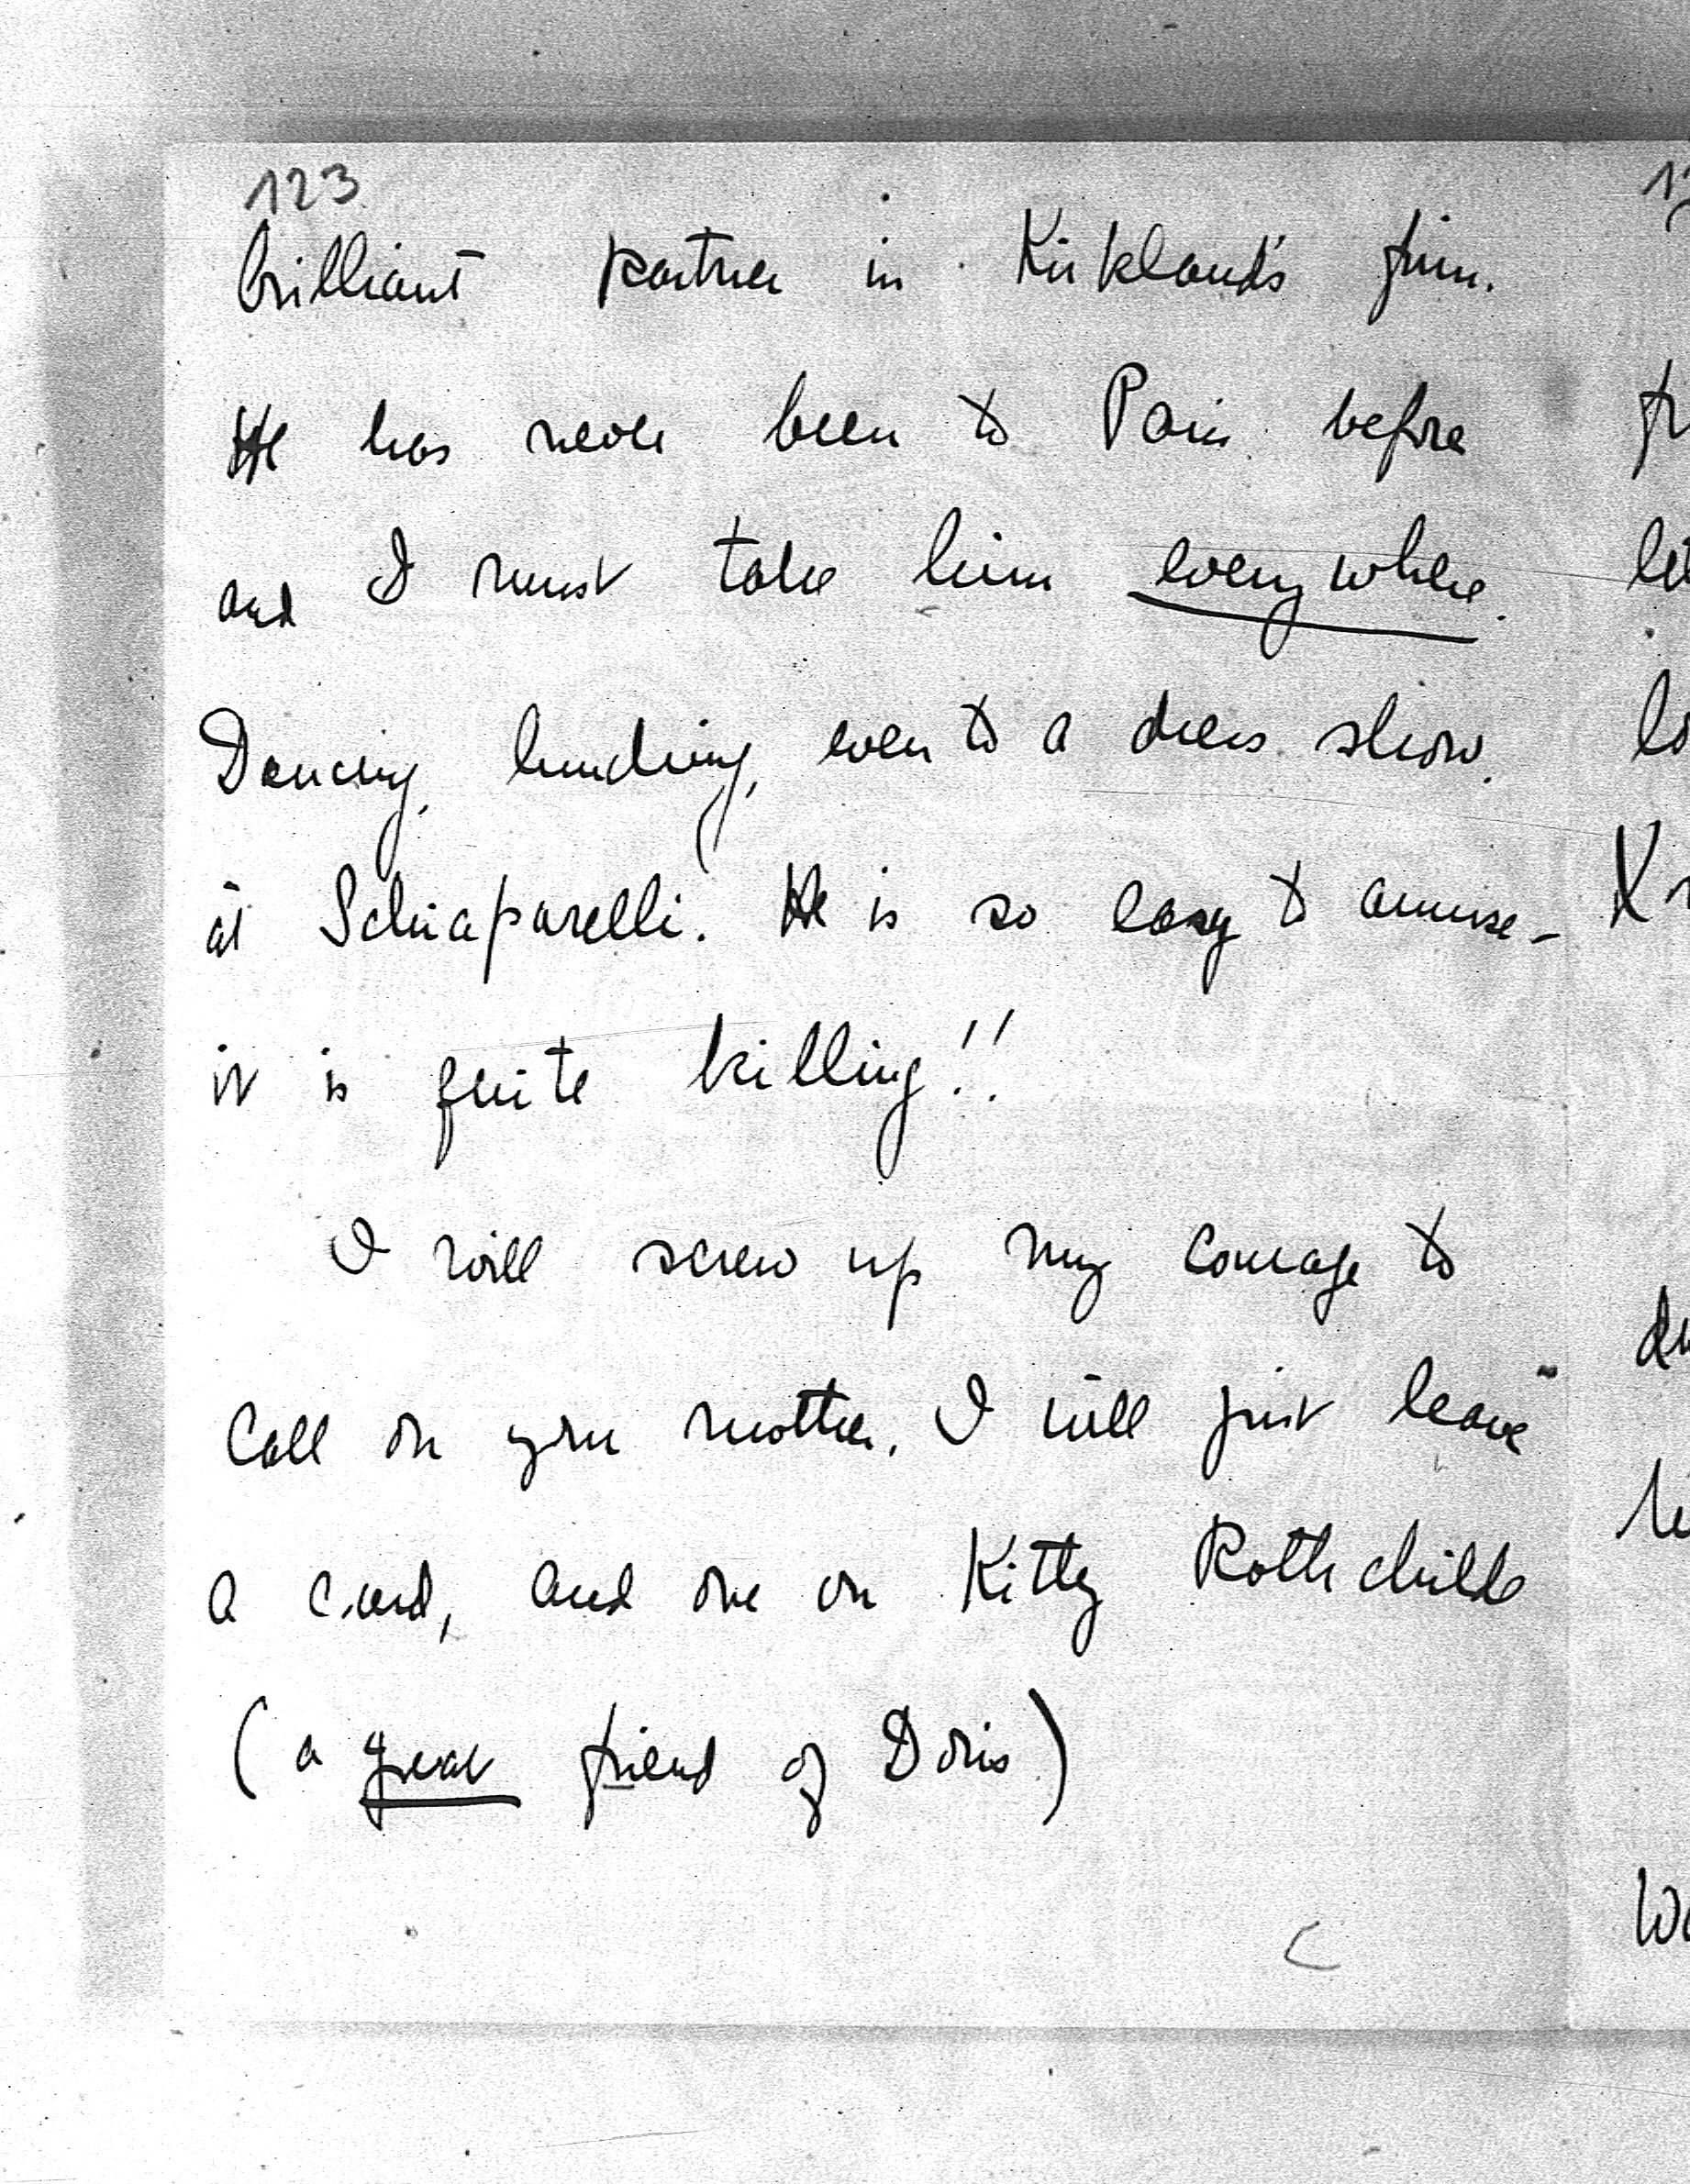 123
brilliant partner in Kirkland's firm.
He has never been to Paris before
and I must take him everywhere.
Dancing, lunching, even to a dress show.
at Schiaparelli. He is so easy to amuse -
it is quite killing!!
I will screw up my courage to
call on your mother. I will just leave
a card, and one on Kitty Rothschild
(a great friend of Doris)